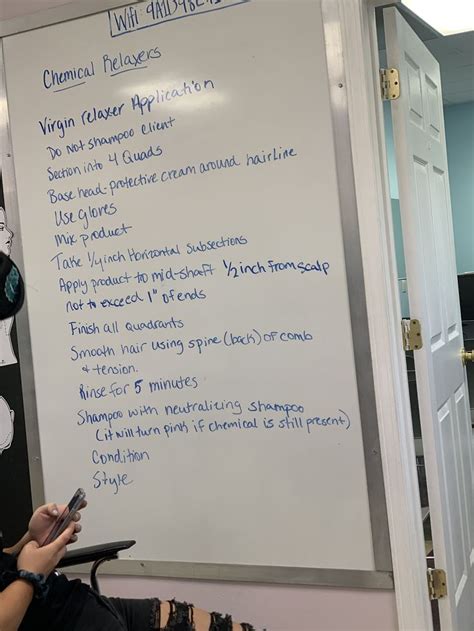 Wifi
Chemical Relaxers
Virgin relaxer Application
Do not shampoo client
Section into 4 Quads
Base head-protective cream around hairline
Use gloves
Mix product
Take 1/4 inch Horizontal Subsections
Apply product to mid-shaft 1/2 inch from scalp
not to exceed 1" of ends
Finish all quadrants
Smooth hair using spine (back) of comb
& tension.
Rinse for 5 minutes
Shampoo with neutralizing shampoo
(it will turn pink if chemical is still present)
Condition
Style